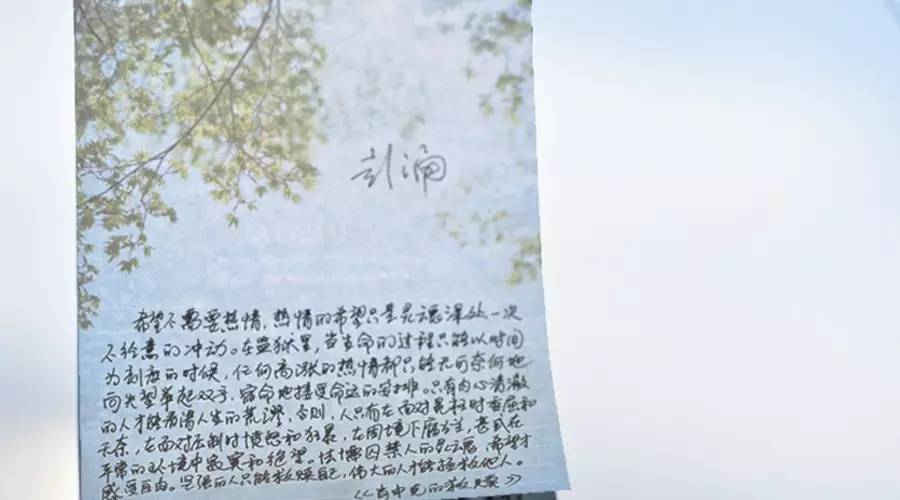 希望不需要热情，热情的希望只是灵魂深处一次
不经意的冲动。在监狱里，当生命的过程只能以时间
为刻度的时候，任何高涨的热情都只能无可奈何地
向失望举起双手，宿命地接受命运的安排。只有内心清澈
的人才能看清人生的荒谬，否则，人只有在面对晃枉时委屈和
无奈，在面对压制时愤怒和狂暴，在困境下腐为主，甚或在
平常的环境中寂寞和绝望。怯懦囚禁人的灵魂，希望才
感受自由。坚强的人只能救赎自己，伟大的人才能拯救他人。
《肖申克的救赎》